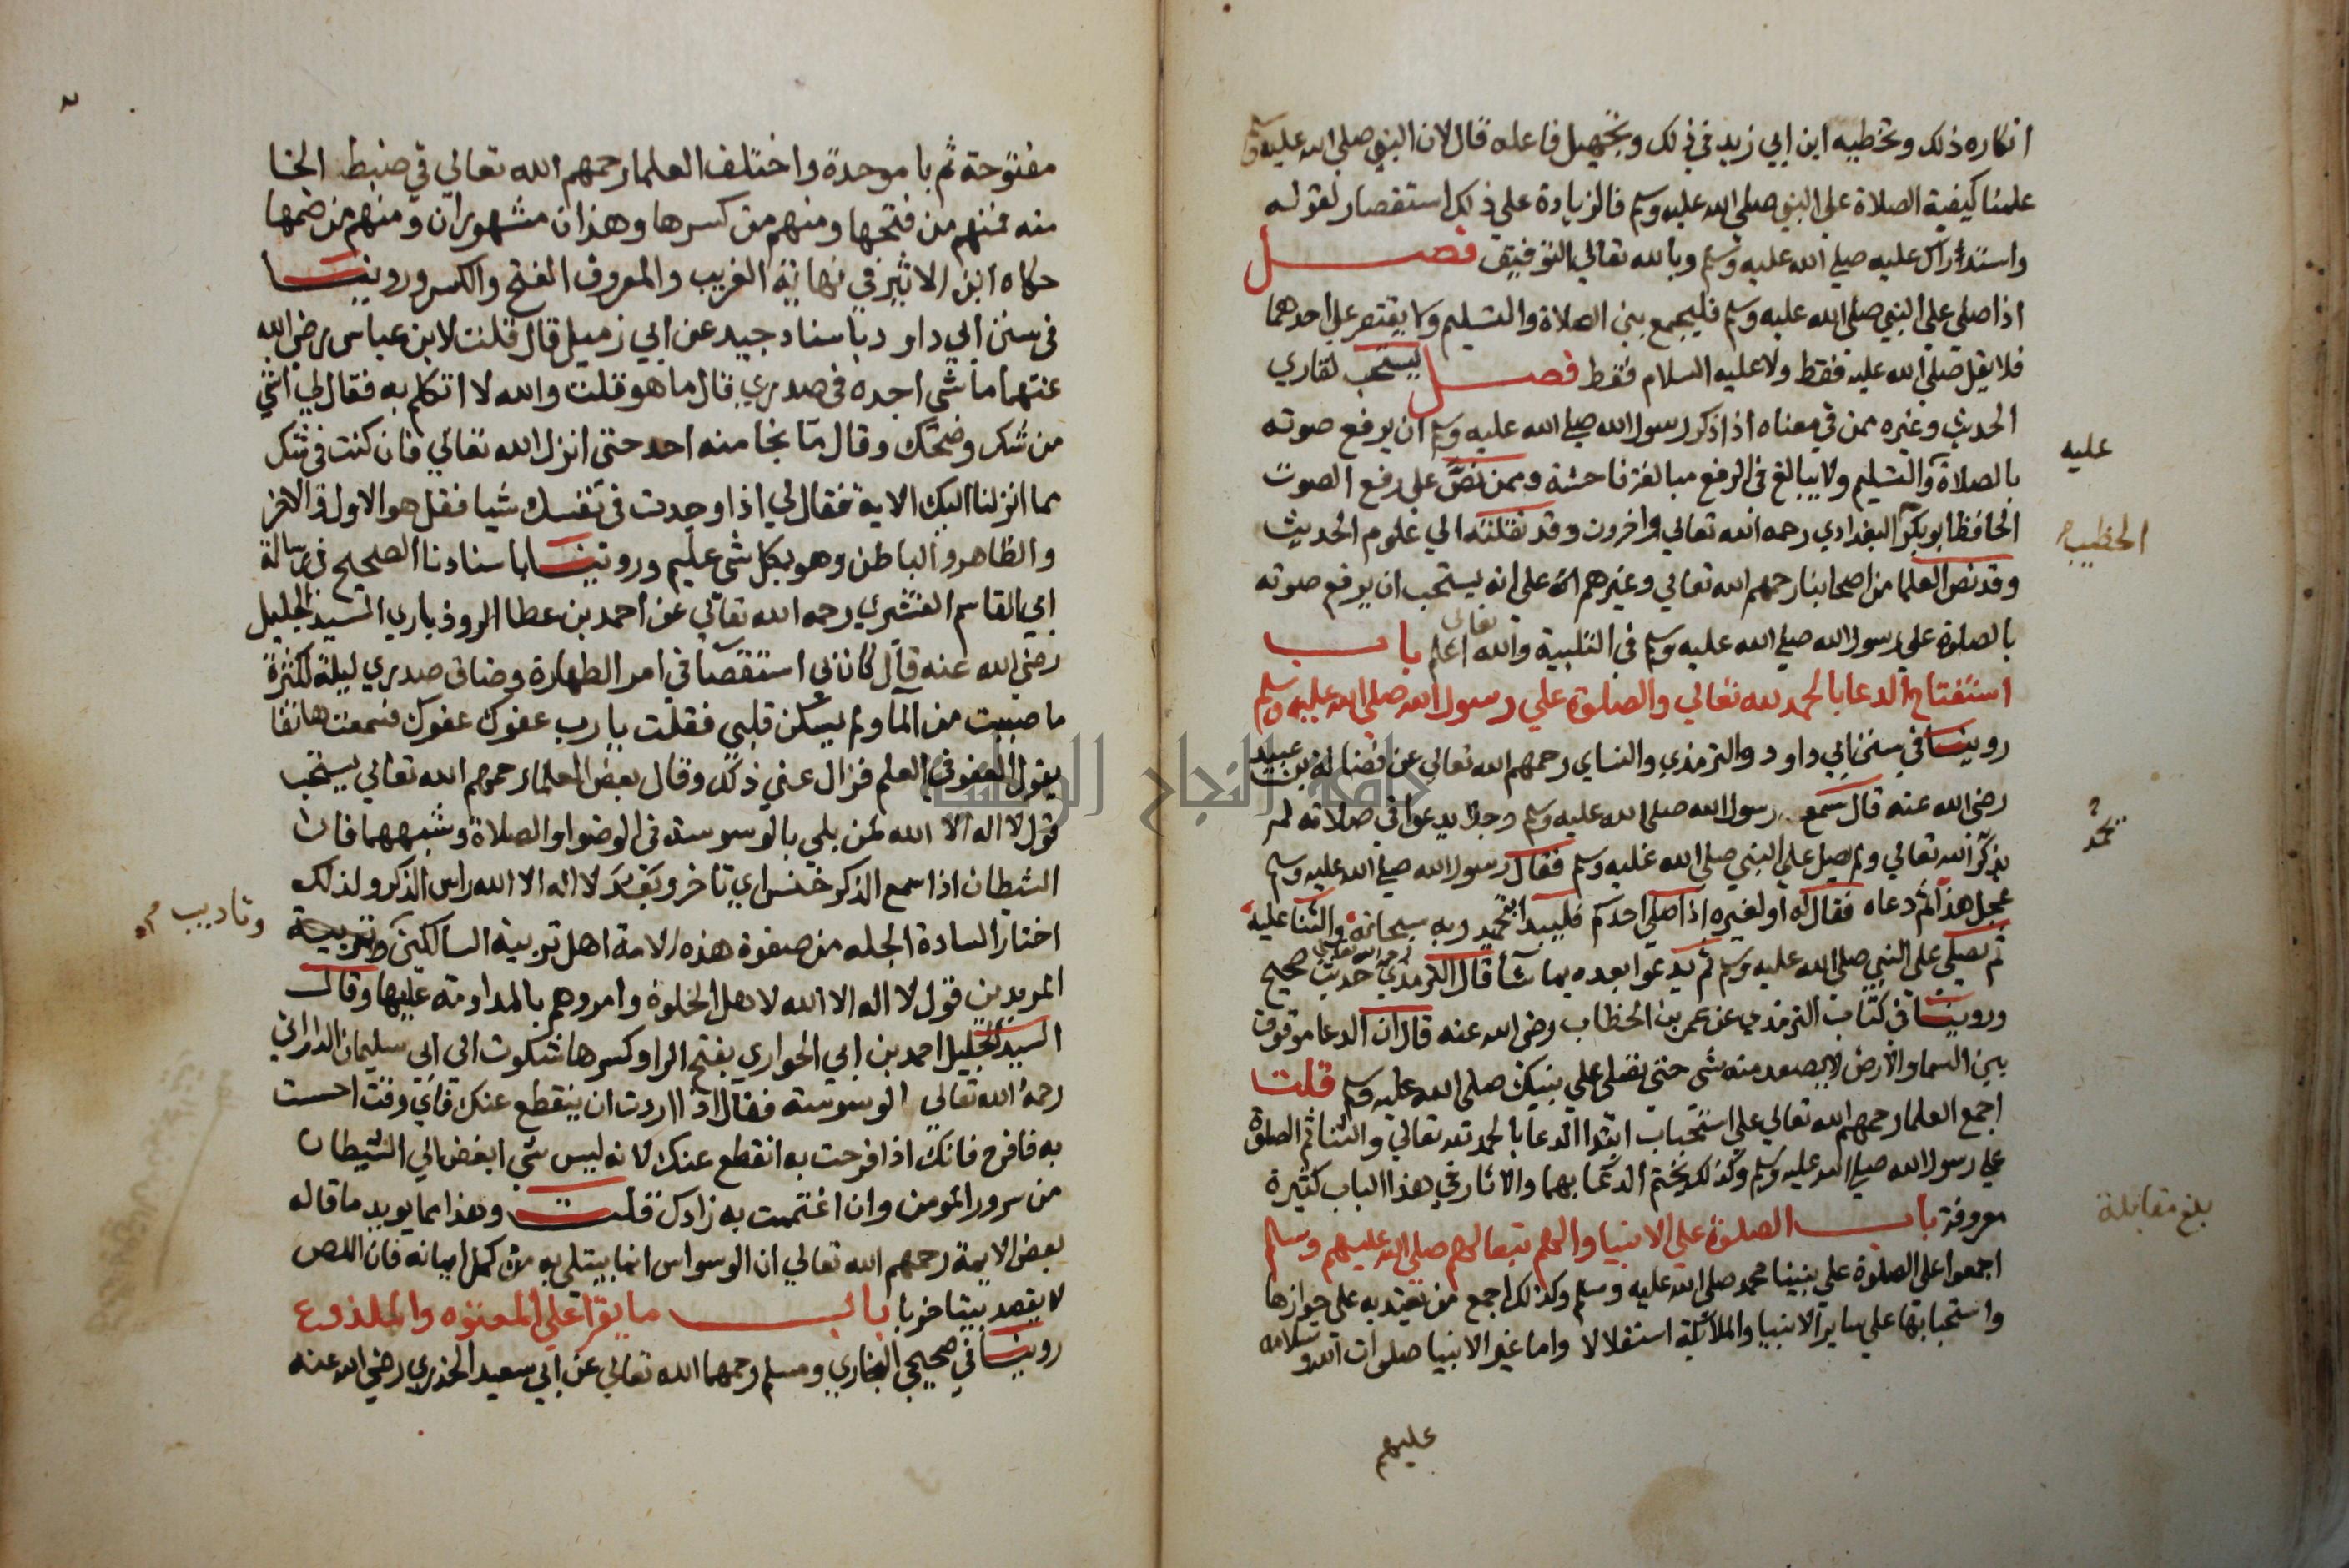 انكاره ذلك وتخطيه ابن ابي زيد في ذلك وتجهيل فاعله قال لان النبي صلى الله عليه وسلم
علمنا كيفية الصلاة على النبي صلى الله عليه وسلم فالزيادة على ذلك استقصار لقوله
واستدراك عليه صلى الله عليه وسلم وبالله تعالى التوفيق فصل
اذا صلى على النبي صلى الله عليه وسلم فليجمع بين الصلاة والتسليم ولا يقتصر على احدهما
فلا يقل صلى الله عليه فقط ولا عليه السلام فقط فصل يستحب لقاري
الحديث وغيره ممن في معناه اذا ذكر رسول الله صلى الله عليه وسلم ان يرفع صوته
عليه
بالصلاة والتسليم ولا يبالغ في الرفع مبالغة فاحشة وممن نص على رفع الصوت
الحافظ ابو بكر البغدادي رحمه الله تعالى واخرون وقد نقلته الى علوم الحديث
الخطيب
وقد نص العلما من اصحابنا رحمهم الله تعالى وغيرهم انه على انه يستحب ان يرفع صوته
بالصلوة على رسول الله صلى الله عليه وسلم في التلبية والله تعالى اعلم باب
استفتاح الدعا بالحمد لله تعالى والصلوة على رسول الله صلى الله عليه وسلم
روينا في سنن ابي داود والترمذي والنساي رحمهم الله تعالى عن فضالة بن عبيد
رضي الله عنه قال سمع رسول الله صلى الله عليه وسلم رجلا يدعوا في صلاته لم
يذكر الله تعالى ولم يصل على النبي صلى الله عليه وسلم فقال رسول الله صلى الله عليه وسلم
عجل هذا ثم دعاه فقال له او لغيره اذا صلى احدكم فليبدا بتحميد ربه سبحانه والثنا عليه
ثم يصلي على النبي صلى الله عليه وسلم ثم يدعوا بعده بما شا قال الترمذي حديث صحيح
وروينا في كتاب الترمذي عن عمر بن الخطاب رضي الله عنه قال ان الدعا موقوف
بين السما والارض لا يصعد منه شي حتى تصلي على نبيك صلى الله عليه وسلم قلت
اجمع العلما رحمهم الله تعالى على استحباب ابتدا الدعا بالحمد لله تعالى والثنا ثم الصلوة
على رسول الله صلى الله عليه وسلم وكذلك يختم الدعا بهما والاثار في هذا الباب كثيرة
معروفة باب الصلوة على الانبيا والهم تبعا لهم صلى الله عليهم وسلم
بلغ مقابلة
اجمعوا على الصلوة على نبينا محمد صلى الله عليه وسلم وكذلك اجمع من يعتد به على جوازها
واستحبابها على ساير الانبيا والملائكة استقلالا واما غير الانبيا صلوات الله وسلامه
عليهم
مفتوحة ثم با موحدة واختلف العلما رحمهم الله تعالى في ضبط الخا
منه فمنهم من فتحها ومنهم من كسرها وهذان مشهوران ومنهم من ضمها
حكاه ابن الاثير في نهاية الغريب والمعروف الفتح والكسر وروينا
في سنن ابي داود باسناد جيد عن ابي زميل قال قلت لابن عباس رضي الله
عنهما ما شي اجده في صدري قال ما هو قلت والله لا اتكلم به فقال لي اشي
من شك وضحك وقال ما نجا منه احد حتى انزل الله تعالى فان كنت في شك
مما انزلنا اليك الاية فقال لي اذا وجدت في نفسك شيا فقل هو الاول والاخر
والظاهر والباطن وهو بكل شي عليم وروينا باسنادنا الصحيح في رسالة
ابي القاسم القشيري رحمه الله تعالى عن احمد بن عطا الروذباري السيد الجليل
رضي الله عنه قال كان لي استقصا في امر الطهارة وضاق صدري ليلة لكثرة
ما صببت من الما ولم يسكن قلبي فقلت يا رب عفوك عفوك فسمعت هاتفا
يقول العفو في العلم فزال عني ذلك وقال بعض العلما رحمهم الله تعالى يستحب
قول لا اله الا الله لمن بلي بالوسوسة في الوضوا والصلاة وشبههما فان
الشطان اذا سمع الذكر خنس اي تاخر وبعد لا اله الا الله راس الذكر ولذلك
اختار السادة الجله من صفوة هذه الامة اهل تربية السالكين
وتاديب
المريدين قول لا اله الا الله لاهل الخلوة وامروهم بالمداومة عليها وقال
السيد الجليل احمد بن ابي الحواري بفتح الرا وكسرها شكوت الى ابي سليمان الداراني
رحمه الله تعالى الوسوسة فقال اذا اردت ان ينقطع عنك فاي وقت احست
به فافرح فانك اذا فرحت به انقطع عنك لانه ليس شي ابغض الى الشيطان
من سرور المومن وان اغتممت به زادك قلت وهذا مما يويد ما قاله
بعض الايمة رحمهم الله تعالى ان الوسواس انما يبتلى به من كمل ايمانه فان اللص
لا يقصد بيتا خربا باب ما يقرا على المعتوه والملدوغ
روينا في صحيحي البخاري ومسلم رحمهما الله تعالى عن ابي سعيد الخدري رضي الله عنه